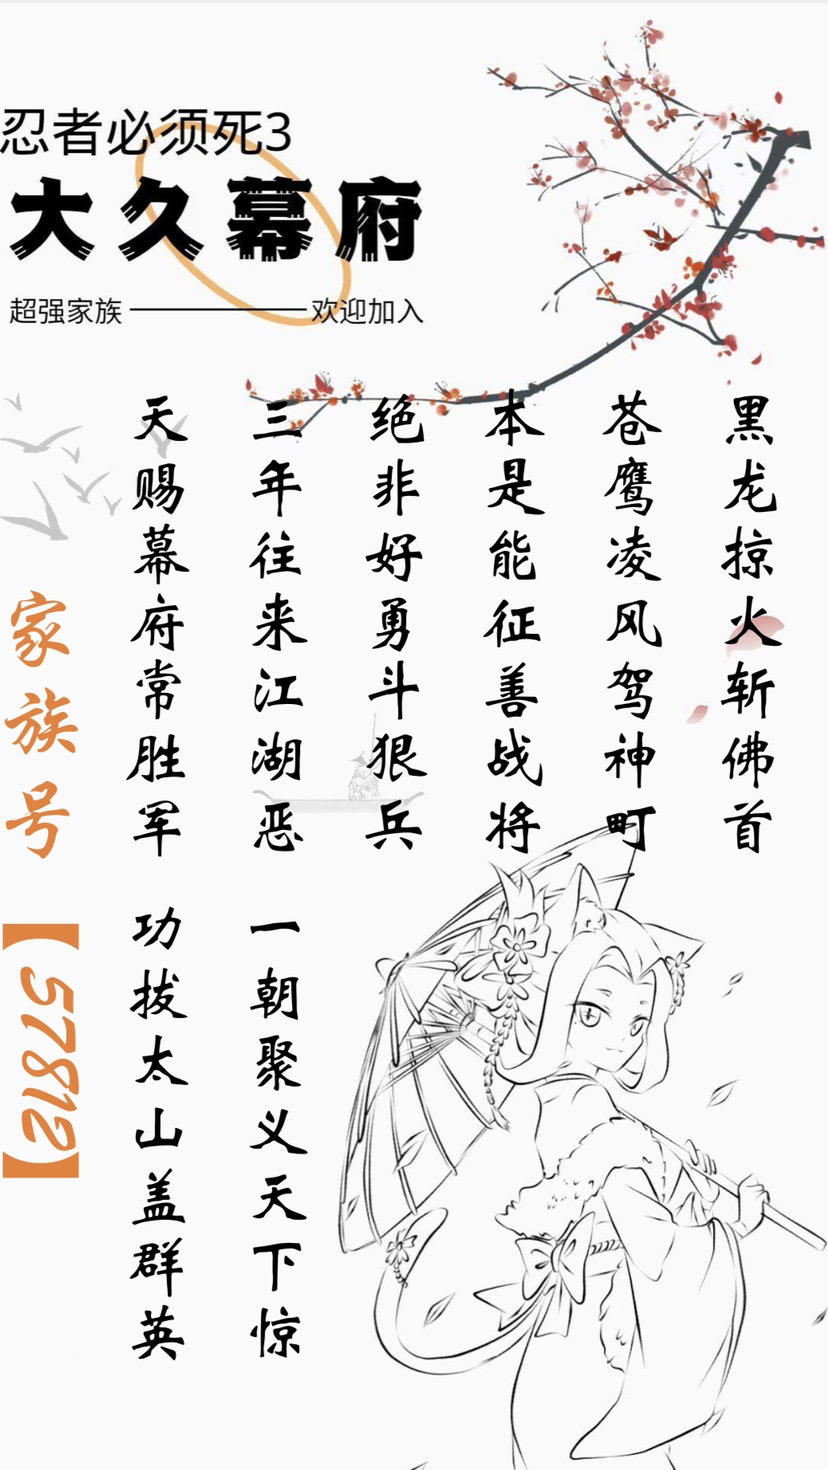 忍者必须死3
大久幕府
超强家族
欢迎加入
黑龙掠火斩佛首
苍鹰凌风驾神町
本是能征善战将
绝非好勇斗狠兵
三年往来江湖恶
一朝聚义天下惊
天赐幕府常胜军
功拔太山盖群英
家族号【57812】